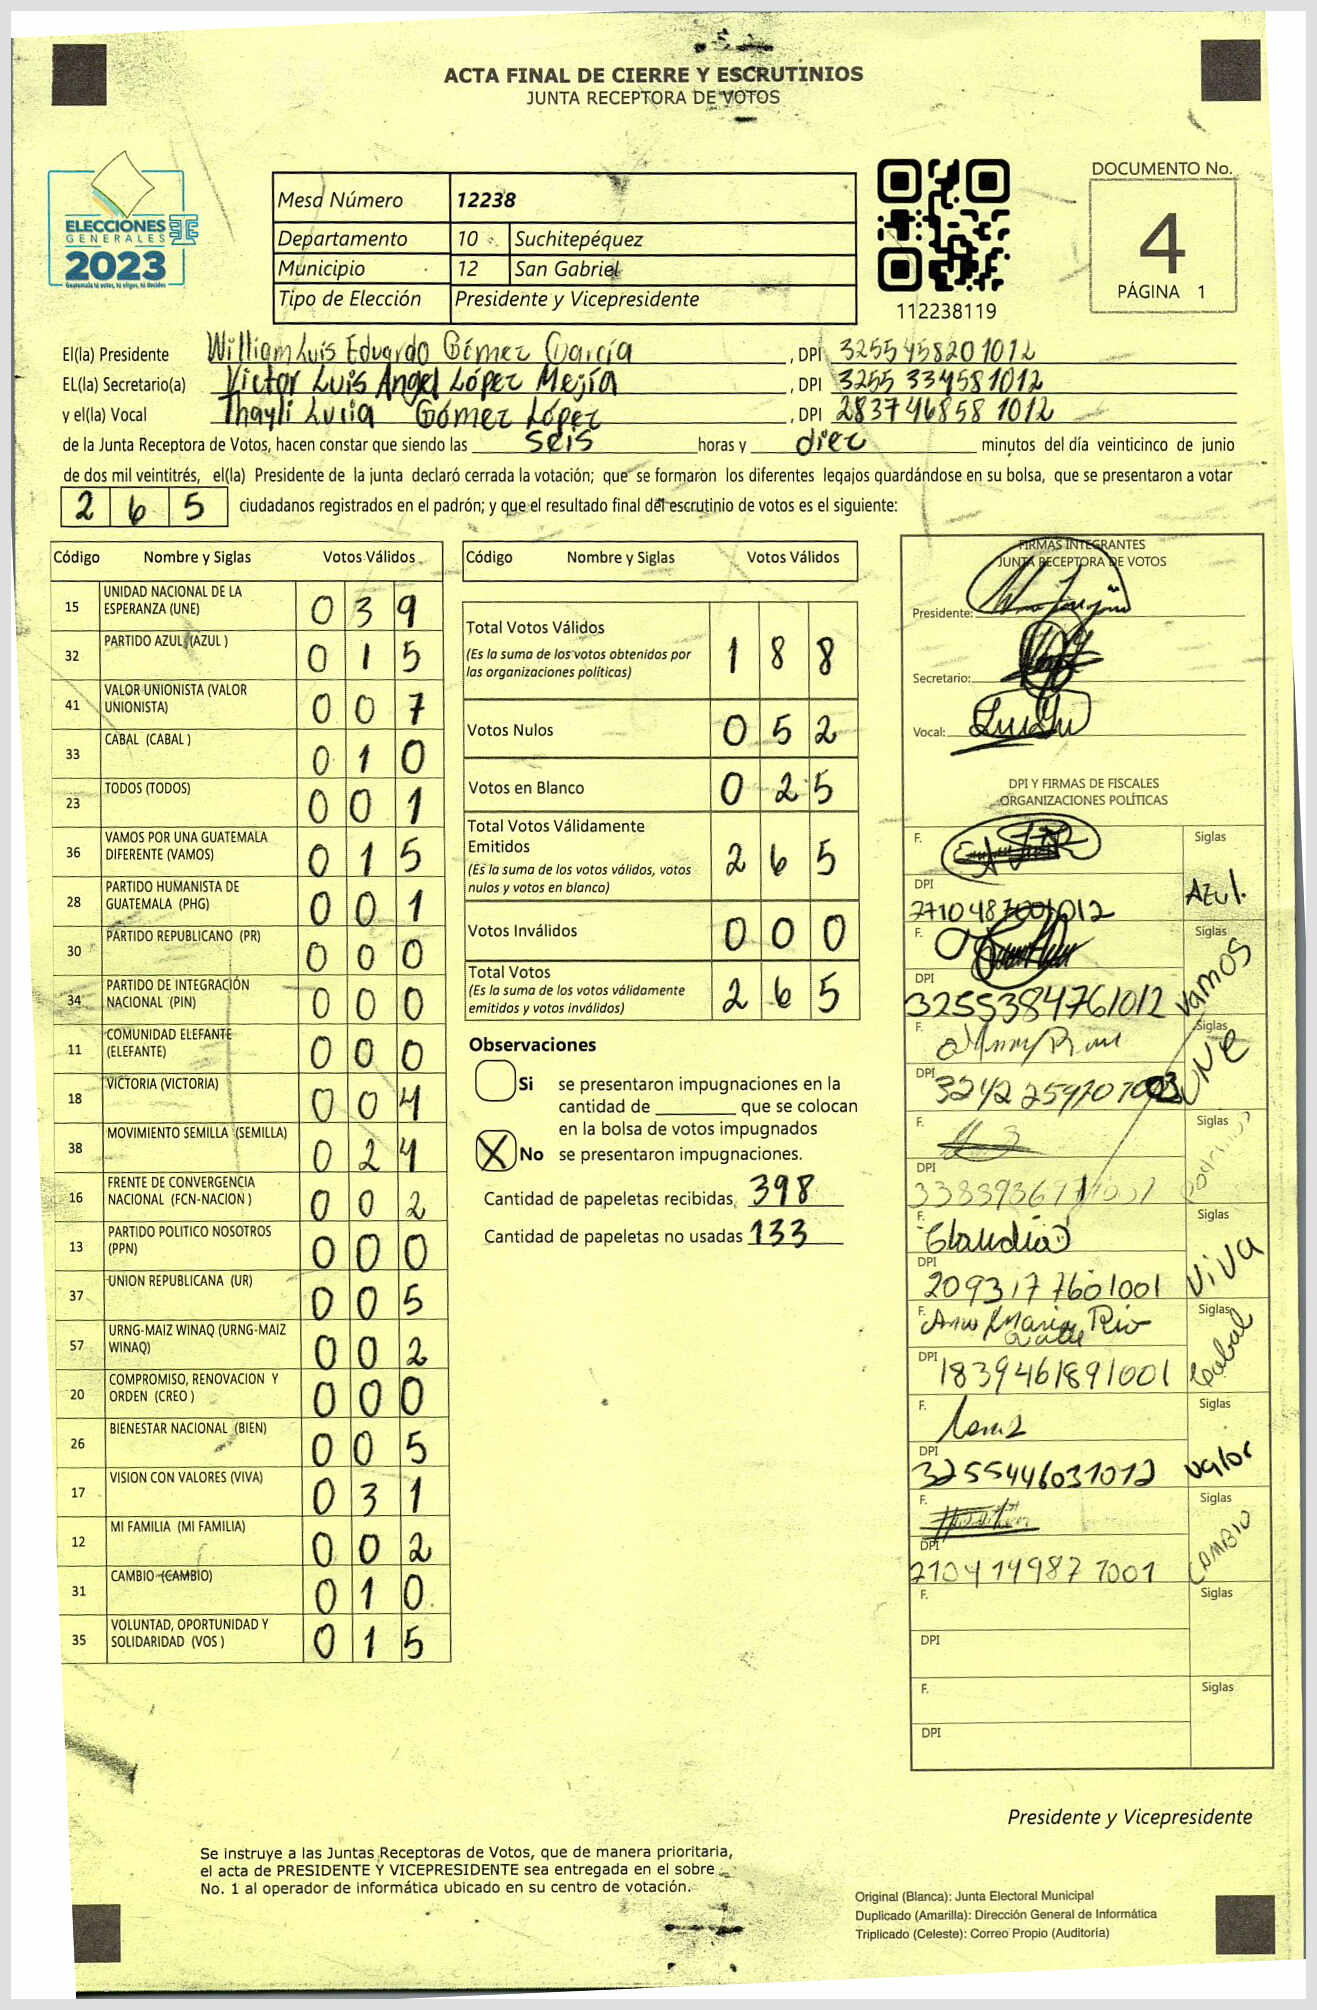 ACTA FINAL DE CIERRE Y ESCRUTINIOS
JUNTA RECEPTORA DE VOTOS
ELECCIONES
GENERALES
2023
Guatemala tú votas, tú eliges, tú decides
Mesa Número 12238
Departamento 10 Suchitepéquez
Municipio 12 San Gabriel
Tipo de Elección Presidente y Vicepresidente
112238119
DOCUMENTO No.
4
PÁGINA 1
El(la) Presidente William Luis Eduardo Gómez García, DPI 3255458201012
EL(la) Secretario(a) Victor Luis Angel López Mejía, DPI 3255 334581012
y el(la) Vocal Thayli Lucia Gómez López, DPI 283746858 1012
de la Junta Receptora de Votos, hacen constar que siendo las seis horas y diez minutos del día veinticinco de junio
de dos mil veintitrés, el(la) Presidente de la junta declaró cerrada la votación; que se formaron los diferentes legajos guardándose en su bolsa, que se presentaron a votar
265 ciudadanos registrados en el padrón; y que el resultado final del escrutinio de votos es el siguiente:
Código Nombre y Siglas Votos Válidos
15 UNIDAD NACIONAL DE LA ESPERANZA (UNE) 039
32 PARTIDO AZUL (AZUL ) 015
41 VALOR UNIONISTA (VALOR UNIONISTA) 007
33 CABAL (CABAL ) 010
23 TODOS (TODOS) 001
36 VAMOS POR UNA GUATEMALA DIFERENTE (VAMOS) 015
28 PARTIDO HUMANISTA DE GUATEMALA (PHG) 001
30 PARTIDO REPUBLICANO (PR) 000
34 PARTIDO DE INTEGRACIÓN NACIONAL (PIN) 000
11 COMUNIDAD ELEFANTE (ELEFANTE) 000
18 VICTORIA (VICTORIA) 004
38 MOVIMIENTO SEMILLA (SEMILLA) 024
16 FRENTE DE CONVERGENCIA NACIONAL (FCN-NACION ) 002
13 PARTIDO POLITICO NOSOTROS (PPN) 000
37 UNION REPUBLICANA (UR) 005
57 URNG-MAIZ WINAQ (URNG-MAIZ WINAQ) 002
20 COMPROMISO, RENOVACION Y ORDEN (CREO ) 000
26 BIENESTAR NACIONAL (BIEN) 005
17 VISION CON VALORES (VIVA) 031
12 MI FAMILIA (MI FAMILIA) 002
31 CAMBIO (CAMBIO) 010
35 VOLUNTAD, OPORTUNIDAD Y SOLIDARIDAD (VOS ) 015
Código Nombre y Siglas Votos Válidos
Total Votos Válidos 188
(Es la suma de los votos obtenidos por
las organizaciones políticas)
Votos Nulos 052
Votos en Blanco 025
Total Votos Válidamente Emitidos 265
(Es la suma de los votos válidos, votos
nulos y votos en blanco)
Votos Inválidos 000
Total Votos 265
(Es la suma de los votos válidamente
emitidos y votos inválidos)
Observaciones
Si se presentaron impugnaciones en la
cantidad de ________ que se colocan
en la bolsa de votos impugnados
X No se presentaron impugnaciones.
Cantidad de papeletas recibidas 398
Cantidad de papeletas no usadas 133
FIRMAS INTEGRANTES
JUNTA RECEPTORA DE VOTOS
Presidente:
Secretario:
Vocal:
DPI Y FIRMAS DE FISCALES
ORGANIZACIONES POLÍTICAS
F. Siglas Azul.
DPI
F. Siglas Vamos
DPI 3255384761012
F. Siglas UNE
DPI
F. Siglas
DPI
F. Claudia Siglas VIVA
DPI 2093177601001
F. Siglas Cabal
DPI 1839461891001
F. Siglas Valor
DPI 3255446031012
F. Siglas CAMBIO
DPI 2104149877001
F. Siglas
DPI
F. Siglas
DPI
Presidente y Vicepresidente
Se instruye a las Juntas Receptoras de Votos, que de manera prioritaria,
el acta de PRESIDENTE Y VICEPRESIDENTE sea entregada en el sobre
No. 1 al operador de informática ubicado en su centro de votación.
Original (Blanca): Junta Electoral Municipal
Duplicado (Amarilla): Dirección General de Informática
Triplicado (Celeste): Correo Propio (Auditoria)